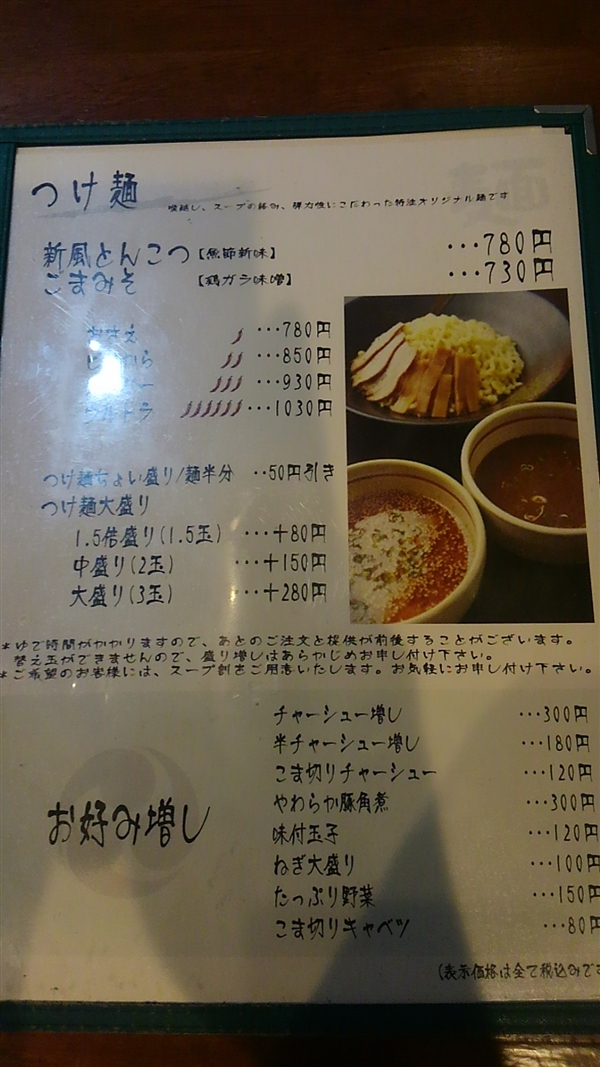 つけ麺
喉越し、スープの絡み、弾力性にこだわった特注オリジナル麺です
新風とんこつ【魚節新味】 ···780円
ごまみそ 【鶏ガラ味噌】 ···730円
···780円
···850円
···930円
ウルトラ ···1030円
つけ麺ちょい盛り/麺半分 ··50円引き
つけ麺大盛り
1.5倍盛り(1.5玉) ···+80円
中盛り(2玉) ···+150円
大盛り(3玉) ···+280円
*ゆで時間がかかりますので、あとのご注文と提供が前後することがございます。
替え玉ができませんので、盛り増しはあらかじめお申し付け下さい。
*ご希望のお客様には、スープ割をご用意いたします。お気軽にお申し付け下さい。
お好み増し
チャーシュー増し ···300円
半チャーシュー増し ···180円
こま切りチャーシュー ···120円
やわらか豚角煮 ···300円
味付玉子 ···120円
ねぎ大盛り ···100円
たっぷり野菜 ···150円
こま切りキャベツ ···80円
(表示価格は全て税込みです